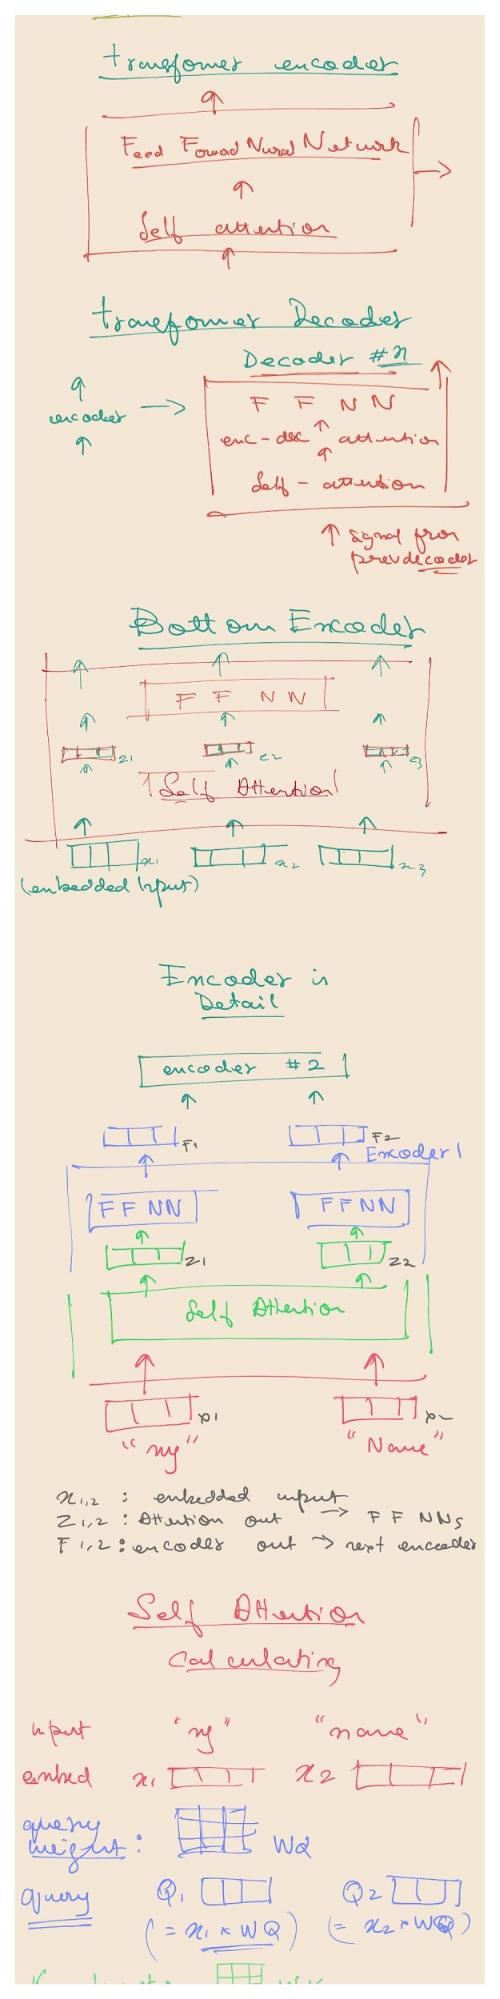 transfomer encoder
Feed Foward Nural Network
Self attention
transfomer Decoder
Decoder #n
encoder
F F N N
enc-dec attention
Self-attention
signal from
prevdecoder
Bottom Encoder
F F N N
z1 z2 z3
Self Attention
x1 x2 x3
(embedded Input)
Encoder in
Detail
encoder #2
F1 F2
Encoder 1
FFNN FFNN
Z1 Z2
Self Attention
x1 x2
"my" "Name"
x1,2 : embedded input
Z1,2 : Attention out → F F NNs
F1,2 : encoder out → next encoder
Self Attention
Calculating
Input "my" "name"
embed x1 x2
query
weight : WQ
query Q1 Q2
(= x1 * WQ) (= x2 * WQ)